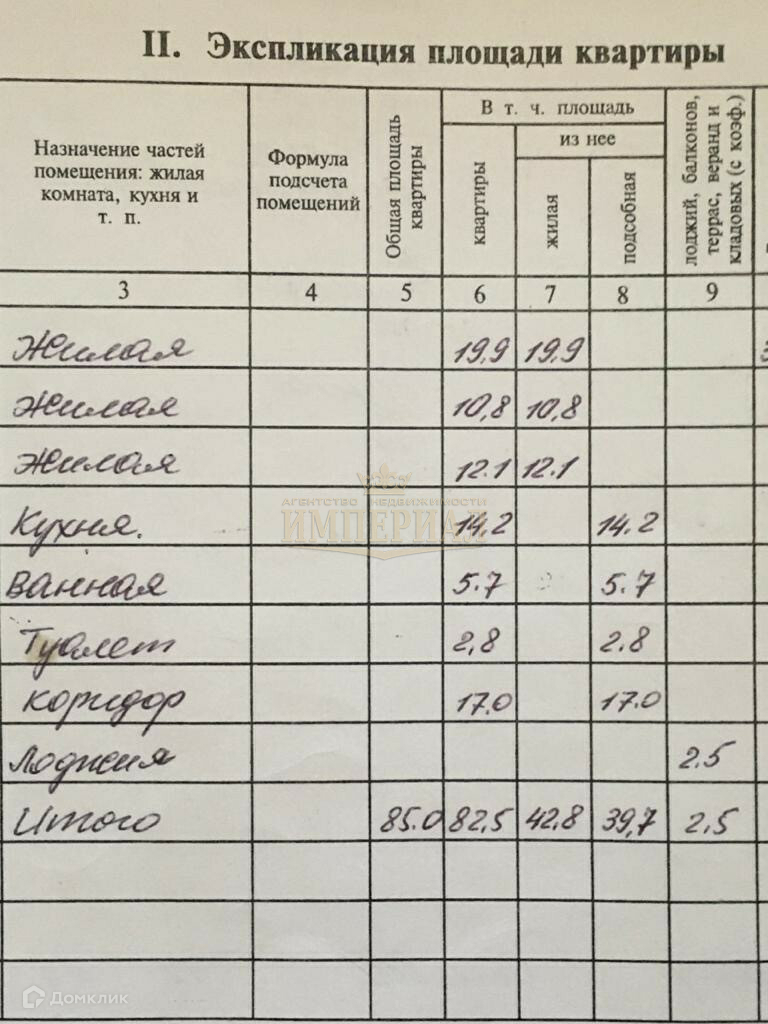 II. Экспликация площади квартиры
Назначение частей
помещения: жилая
комната, кухня и
т. п.
Формула
подсчета
помещений
Общая площадь
квартиры
В т. ч. площадь
из нее
квартиры
жилая
подсобная
лоджий, балконов,
террас, веранд и
кладовых (с коэф.)
3 4 5 6 7 8 9
Жилая 19,9 19.9
Жилая 10,8 10,8
Жилая 12.1 12.1
АГЕНТСТВО НЕДВИЖИМОСТИ
ИМПЕРИАЛ
Кухня. 14.2 14.2
Ванная 5.7 5.7
Туалет 2,8 2.8
Коридор 17.0 17.0
Лоджия 2.5
Итого 85.0 82,5 42.8 39,7 2,5
Домклик